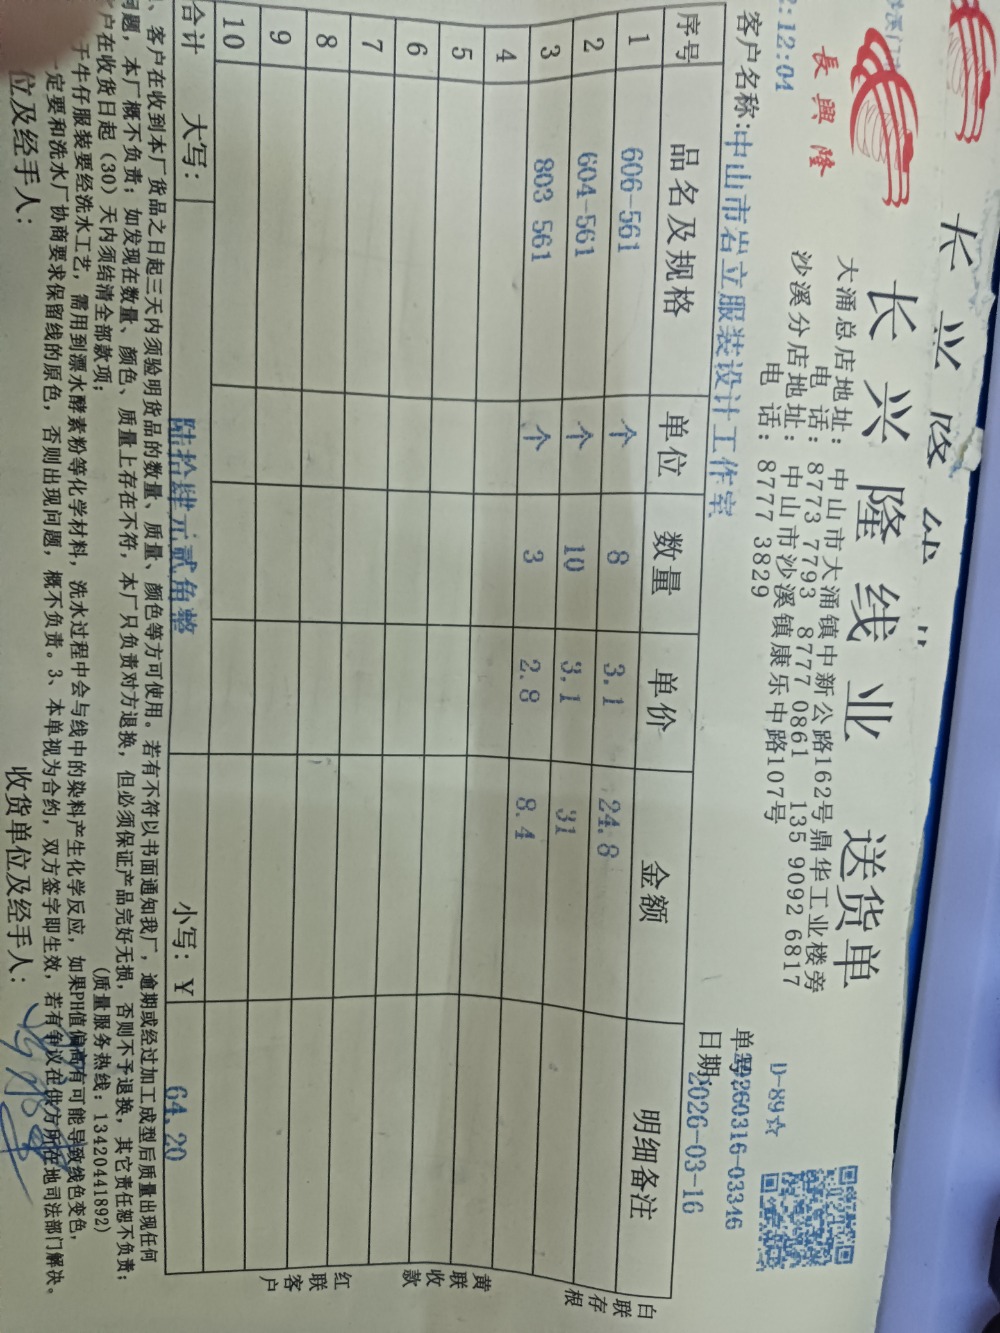 长兴隆线
長興隆
长兴隆线业 送货单
大涌总店地址：中山市大涌镇中新公路162号鼎华工业楼旁
电 话：8773 7793 8777 0861 135 9092 6817
沙溪分店地址：中山市沙溪镇康乐中路107号
电 话：8777 3829
D-89☆
:12:04
单号:20260316-03346
客户名称:中山市岩立服装设计工作室
日期:2026-03-16
序号 品名及规格 单位 数量 单价 金额 明细备注
1 606-561 个 8 3.1 24.8
2 604-561 个 10 3.1 31
3 803 561 个 3 2.8 8.4
4
5
6
7
8
9
10
合计 大写： 陆拾肆元贰角整 小写：¥ 64.20
白联存根
黄联收款
红联客户
客户在收到本厂货品之日起三天内须验明货品的数量、质量、颜色等方可使用。若有不符以书面通知我厂，逾期或经过加工成型后质量出现任何
问题，本厂概不负责；如发现在数量、颜色、质量上存在不符，本厂只负责对方退换，但必须保证产品完好无损，否则不予退换，其它责任恕不负责；
户在收货日起（30）天内须结清全部款项； (质量服务热线：13420441892)
于牛仔服装要经洗水工艺，需用到漂水酵素粉等化学材料，洗水过程中会与线中的染料产生化学反应，如果PH值偏高有可能导致线色变色，
定要和洗水厂协商要求保留线的原色，否则出现问题，概不负责。3、本单视为合约，双方签字即生效，若有争议在供方所在地司法部门解决。
位及经手人： 收货单位及经手人：